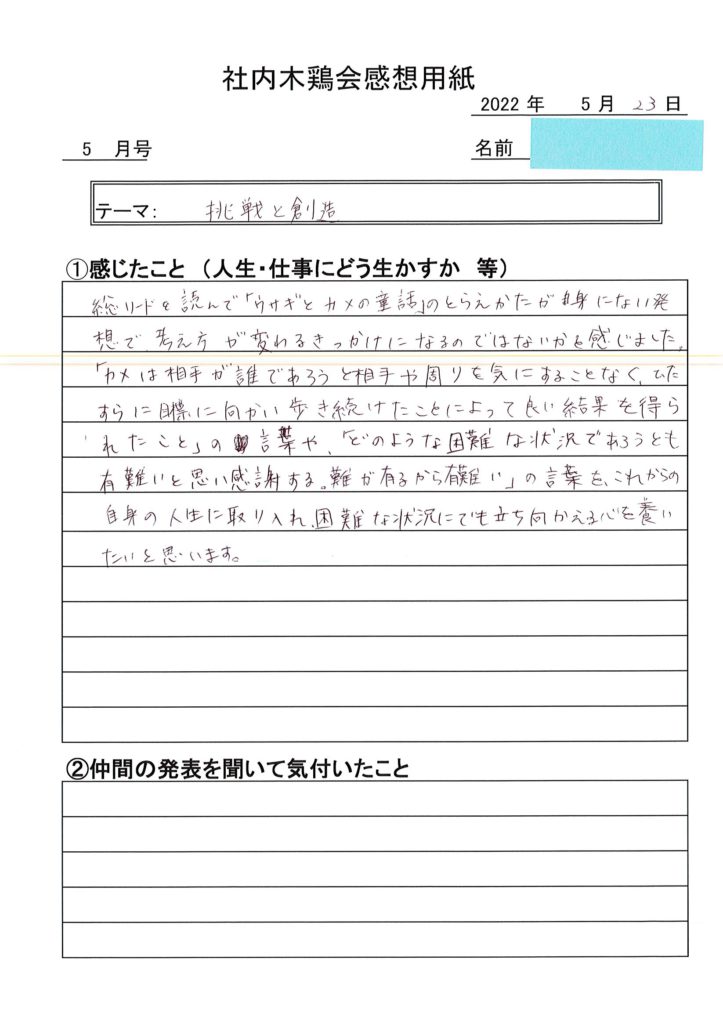 社内木鶏会感想用紙
2022 年 5 月 23 日
5 月号
名前
テーマ: 挑戦と創造
①感じたこと (人生・仕事にどう生かすか 等)
総リードを読んで「ウサギとカメの童話」のとらえかたが自身にない発
想で、考え方が変わるきっかけになるのではないかを感じました。
「カメは相手が誰であろうと相手や周りを気にすることなく、ひた
すらに目標に向かい歩き続けたことによって良い結果を得ら
れたこと」の言葉や、「どのような困難な状況であろうとも
有難いと思い感謝する。難が有るから有難い」の言葉を、これからの
自身の人生に取り入れ、困難な状況にでも立ち向かえる心を養い
たいと思います。
②仲間の発表を聞いて気付いたこと